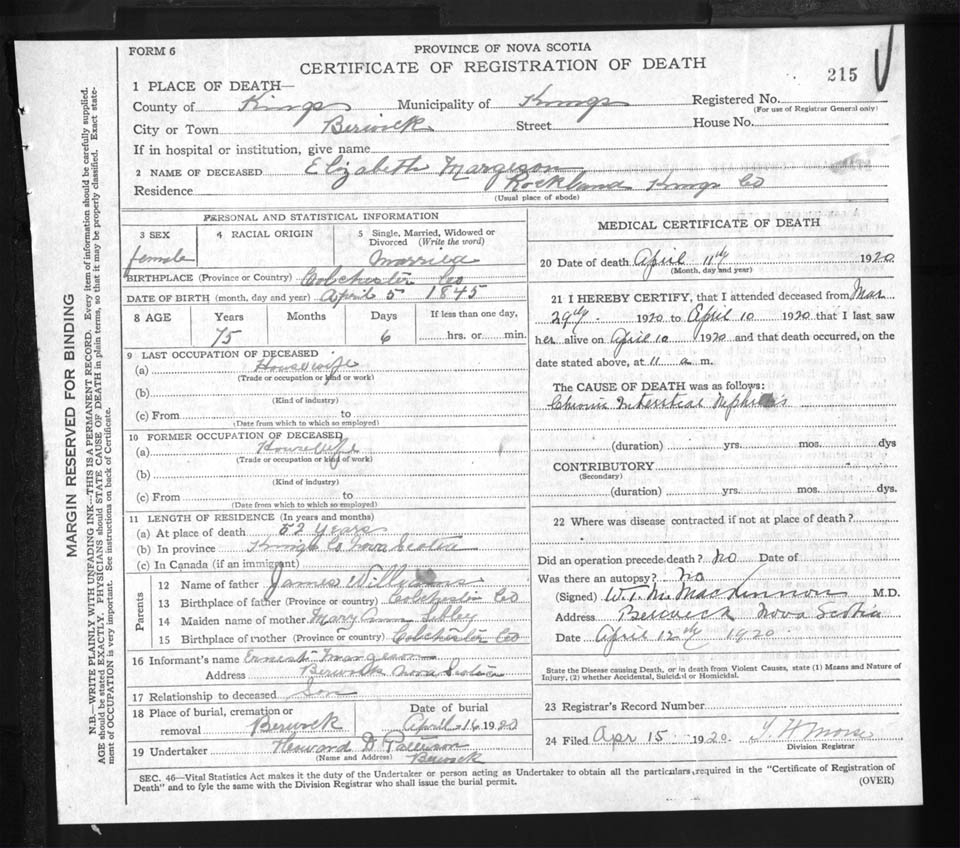 FORM 6
PROVINCE OF NOVA SCOTIA
CERTIFICATE OF REGISTRATION OF DEATH
215
1 PLACE OF DEATH—
County of Kings Municipality of Kings Registered No.
(For use of Registrar General only)
City or Town Berwick Street House No.
If in hospital or institution, give name
2 NAME OF DECEASED Elizabeth Margeson
Residence Rockland Kings Co
(Usual place of abode)
PERSONAL AND STATISTICAL INFORMATION
3 SEX
female
4 RACIAL ORIGIN
5 Single, Married, Widowed or
Divorced (Write the word)
Married
BIRTHPLACE (Province or Country) Colchester Co
DATE OF BIRTH (month, day and year) April 5 1845
8 AGE Years Months Days If less than one day,
75 6 hrs. or min.
9 LAST OCCUPATION OF DECEASED
(a) Housewife
(Trade or occupation or kind or work)
(b)
(Kind of industry)
(c) From to
(Date from which to which so employed)
10 FORMER OCCUPATION OF DECEASED
(a) Housewife
(Trade or occupation or kind of work)
(b)
(Kind of industry)
(c) From to
(Date from which to which so employed)
11 LENGTH OF RESIDENCE (In years and months)
(a) At place of death 52 Years
(b) In province Kings Co Nova Scotia
(c) In Canada (if an immigrant)
Parents
12 Name of father James Williams
13 Birthplace of father (Province or country) Colchester Co
14 Maiden name of mother Mary Ann Sibley
15 Birthplace of mother (Province or country) Colchester Co
16 Informant's name Ernest Margeson
Address Berwick Nova Scotia
17 Relationship to deceased Son
18 Place of burial, cremation or
removal Berwick
Date of burial
April 16 1920
19 Undertaker Howard D Patterson
(Name and Address) Berwick
MEDICAL CERTIFICATE OF DEATH
20 Date of death April 11th 1920
(Month, day and year)
21 I HEREBY CERTIFY, that I attended deceased from Mar
29th 1920 to April 10 1920 that I last saw
her alive on April 10 1920 and that death occurred, on the
date stated above, at 11 a m.
The CAUSE OF DEATH was as follows:
Chronic Intersticar Nephritis
(duration) yrs. mos. dys
CONTRIBUTORY
(Secondary)
(duration) yrs. mos. dys.
22 Where was disease contracted if not at place of death?
Did an operation precede death? no Date of
Was there an autopsy? no
(Signed) W. T. M. MacKinnon M.D.
Address Berwick Nova Scotia
Date April 12th 1920
State the Disease causing Death, or in death from Violent Causes, state (1) Means and Nature of
Injury, (2) whether Accidental, Suicidal or Homicidal.
23 Registrar's Record Number
24 Filed Apr 15 1920 Morse
Division Registrar
SEC. 46—Vital Statistics Act makes it the duty of the Undertaker or person acting as Undertaker to obtain all the particulars required in the "Certificate of Registration of
Death" and to fyle the same with the Division Registrar who shall issue the burial permit.
(OVER)
MARGIN RESERVED FOR BINDING
N.B.—WRITE PLAINLY WITH UNFADING INK—THIS IS A PERMANENT RECORD. Every item of information should be carefully supplied.
AGE should be stated EXACTLY. PHYSICIANS should STATE CAUSE OF DEATH in plain terms, so that it may be properly classified. Exact state-
ment of OCCUPATION is very important. See instructions on back of Certificate.